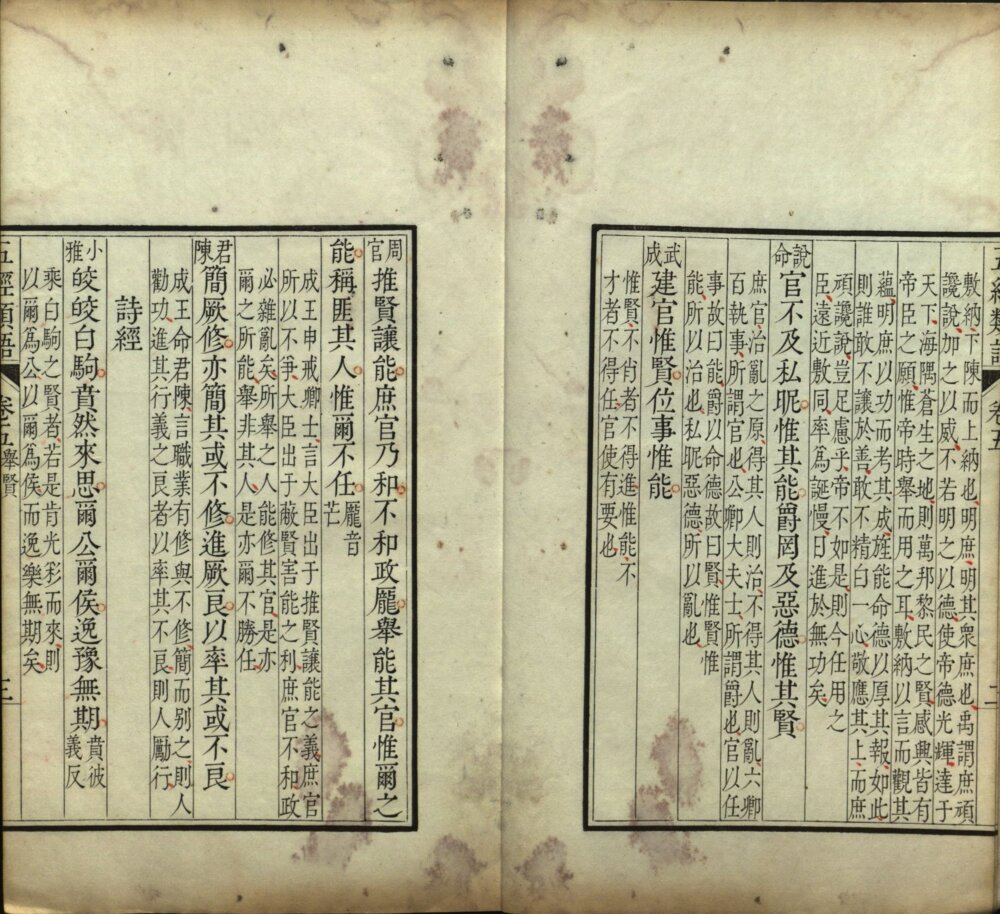 敷納下陳而上納也明庶明其衆庶也禹謂庶頑
讒說加之以威不若明之以德使帝德光輝達于
天下海隅蒼生之地則萬邦黎民之賢感興皆有
帝臣之願惟帝時舉而用之耳敷納以言而觀其
蘊明庶以功而考其成旌能命德以厚其報如此
則誰敢不讓於善敢不精白一心敬應其上而庶
頑讒說豈足慮乎帝不如是則今任用之
臣遠近敷同率爲誕慢日進於無功矣
說命
官不及私昵惟其能爵罔及惡德惟其賢
庶官治亂之原得其人則治不得其人則亂六卿
百執事所謂官也公卿大夫士所謂爵也官以任
事故曰能爵以命德故曰賢惟賢惟
能所以治也私昵惡德所以亂也
武成
建官惟賢位事惟能
惟賢不肖者不得進惟能不
才者不得任官使有要也
五經類語
卷五
二
周官
推賢讓能庶官乃和不和政厖舉能其官惟爾之
能稱匪其人惟爾不任
厖音
芒
成王申戒卿士言大臣出于推賢讓能之義庶官
所以不爭大臣出于蔽賢害能之利庶官不和政
必雜亂矣所舉之人能修其官是亦
爾之所能舉非其人是亦爾不勝任
君陳
簡厥修亦簡其或不修進厥良以率其或不良
成王命君陳言職業有修與不修簡而别之則人
勸功進其行義之良者以率其不良則人勵行
詩經
小雅
皎皎白駒賁然來思爾公爾侯逸豫無期
賁彼
義反
乘白駒之賢者若是肯光彩而來則
以爾爲公以爾爲侯而逸樂無期矣
五經類語
卷五
舉賢
三